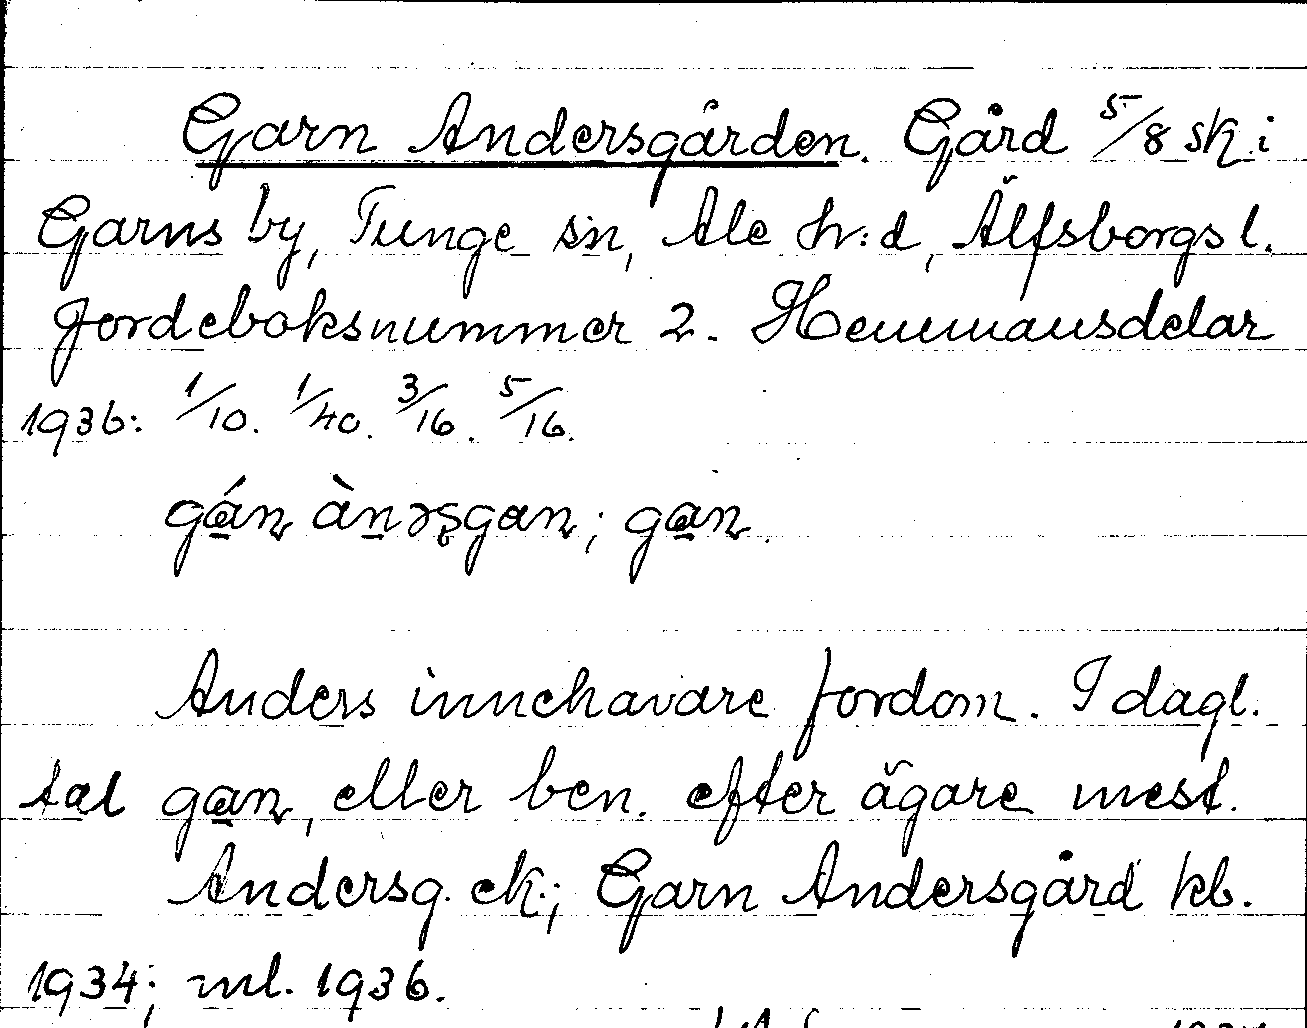 Garn Andersgården. Gård 5/8 sk. i
Garns by, Tunge sn, Ale hr:d, Älfsborgs l.
Jordeboksnummer 2. Hemmansdelar
1936: 1/10. 1/40. 3/16. 5/16.
gán ànəşgan; gan.
Anders innehavare fordom. I dagl.
tal gan, eller ben. efter ägare mest.
Andersg. ek.; Garn Andersgård kb.
1934; ml. 1936.